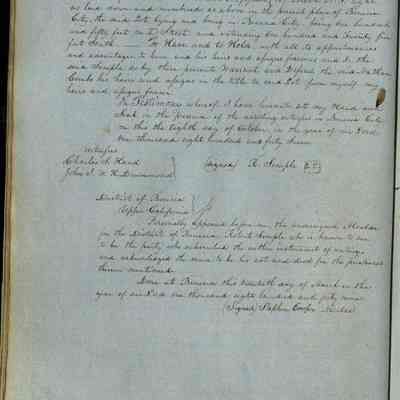 as laid down and numbered as above on the general plan of Benicia
City, the said Lot lying and being in Benicia City being one hundred
and fifty feet on Street and extending one hundred and twenty five
feet South To Have and to Hold, with all its appurtenances
and advantages to him and his heirs and assigns forever and I the
said Semple do by these presents Warrant and Defend the said Nathan
Coombs his heirs and assigns in the title to said Lot from myself my
heirs and assigns forever.
In Testimony whereof I have hereunto set my Hand and
Seal in the presence of the assisting witnesses in Benicia City
on this the Eighth day of October in the year of our Lord
one thousand eight hundred and forty Seven
witnesses
Charles S. Hand (signed) R. Semple
John S. Drummond
District of Benicia
Upper California
Personally appeared before me, the undersigned Alcalde
in the District of Benicia, Robert Semple who is known to me
to be the party who subscribed the within instrument of writing
and acknowledged the same to be his act and deed for the purposes
therein mentioned.
Done at Benicia this day of March in the
year of our Lord one thousand eight hundred and forty nine
(Signed) Stephen Cooper Alcalde